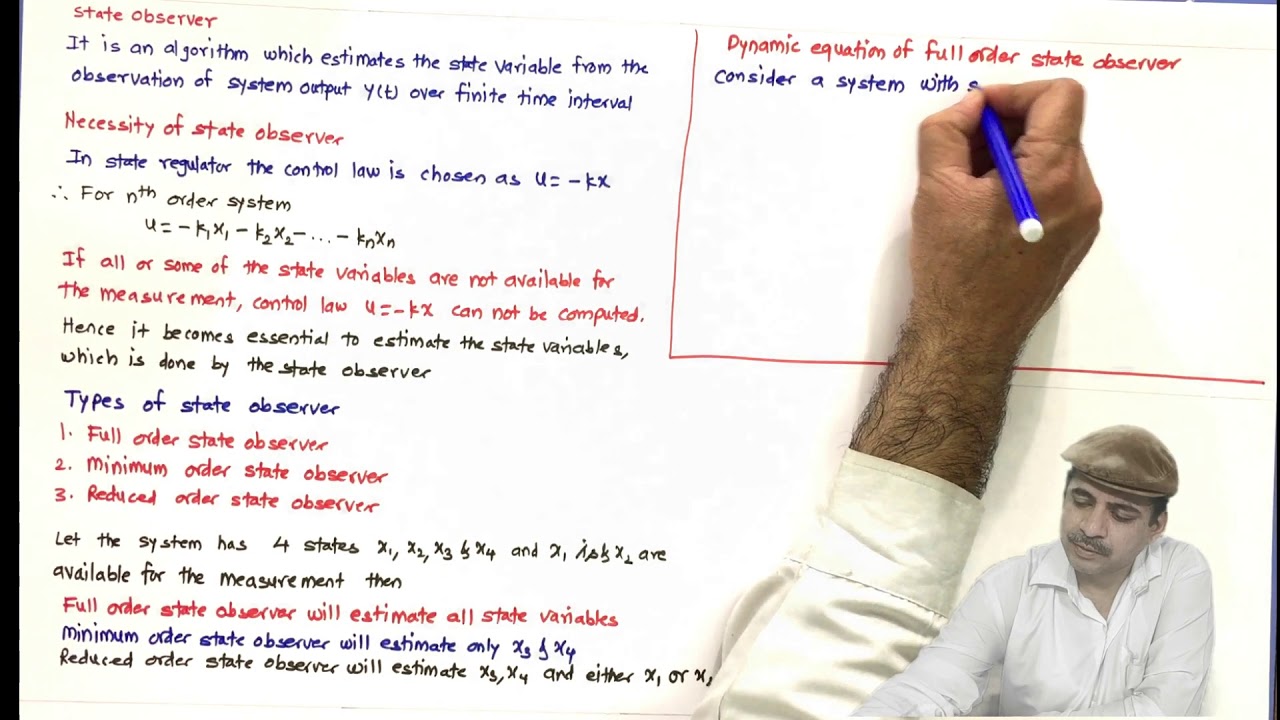 State Observer
It is an algorithm which estimates the state variable from the
observation of system output y(t) over finite time interval
Necessity of state observer
In state regulator the control law is chosen as u = -kx
∴ For nth order system
u = -k₁x₁ - k₂x₂ - ... - kₙxₙ
If all or some of the state variables are not available for
the measurement, control law u = -kx can not be computed.
Hence it becomes essential to estimate the state variables,
which is done by the state observer
Types of state observer
1. Full order state observer
2. Minimum order state observer
3. Reduced order state observer
Let the system has 4 states x₁, x₂, x₃ & x₄ and x₁ & x₂ are
available for the measurement then
Full order state observer will estimate all state variables
Minimum order state observer will estimate only x₃ & x₄
Reduced order state observer will estimate x₃, x₄ and either x₁ or x₂
Dynamic equation of full order state observer
Consider a system with s